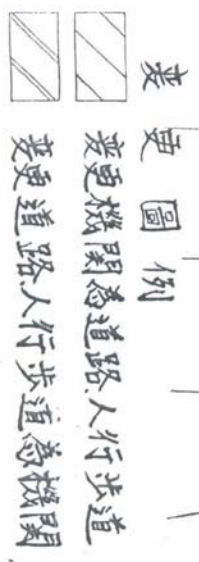 變更圖例
變更機關為道路.人行步道
變更道路.人行步道為機關